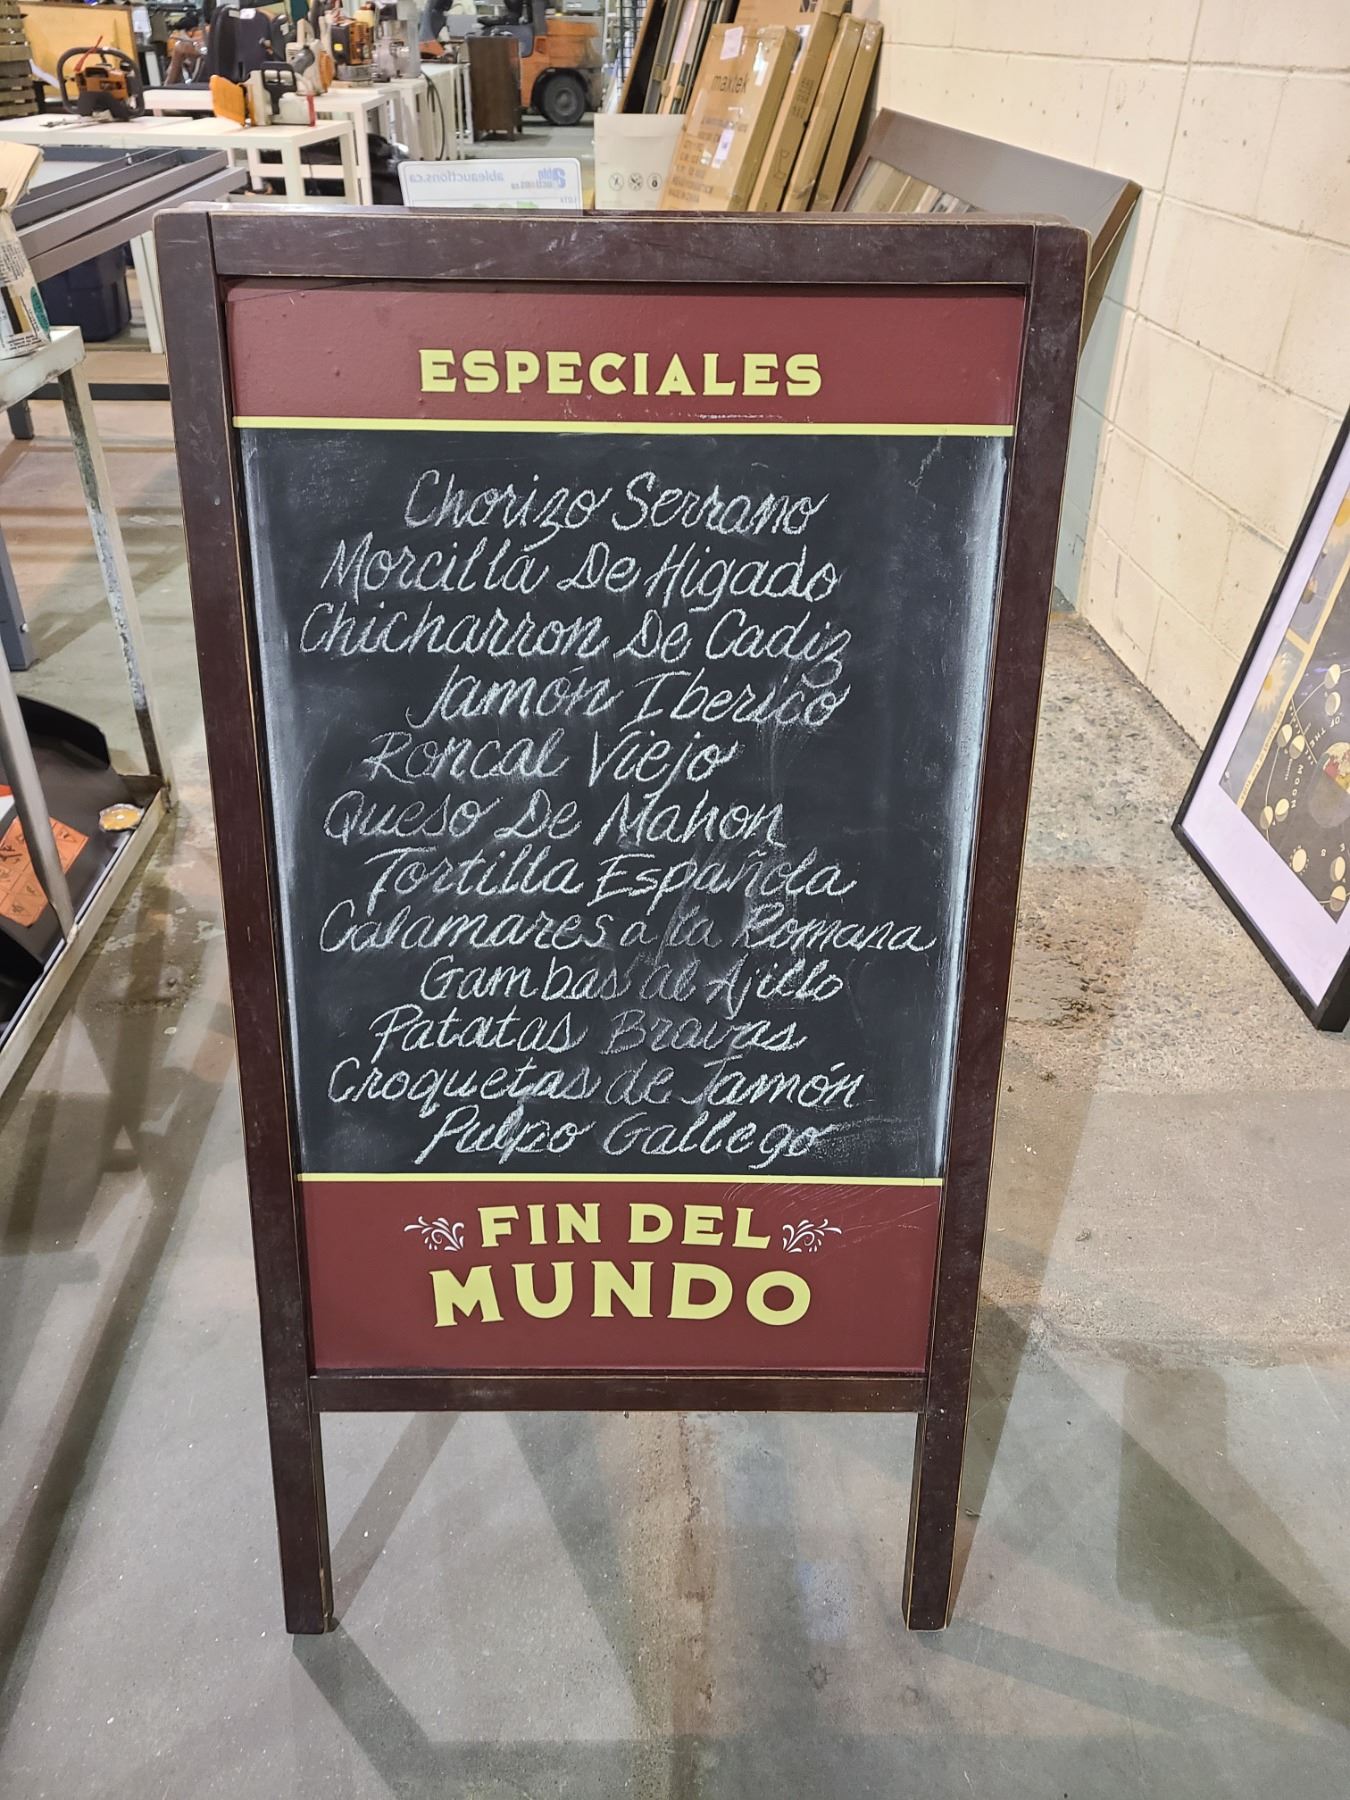 maxtek
able
auctions.ca
ableauctions.ca
ESPECIALES
Chorizo Serrano
Morcilla De Higado
Chicharron De Cadiz
Jamón Iberico
Roncal Viejo
Queso De Mahon
Tortilla Española
Calamares a la Romana
Gambas al Ajillo
Patatas Bravas
Croquetas de Jamón
Pulpo Gallego
FIN DEL
MUNDO
OF THE MOON